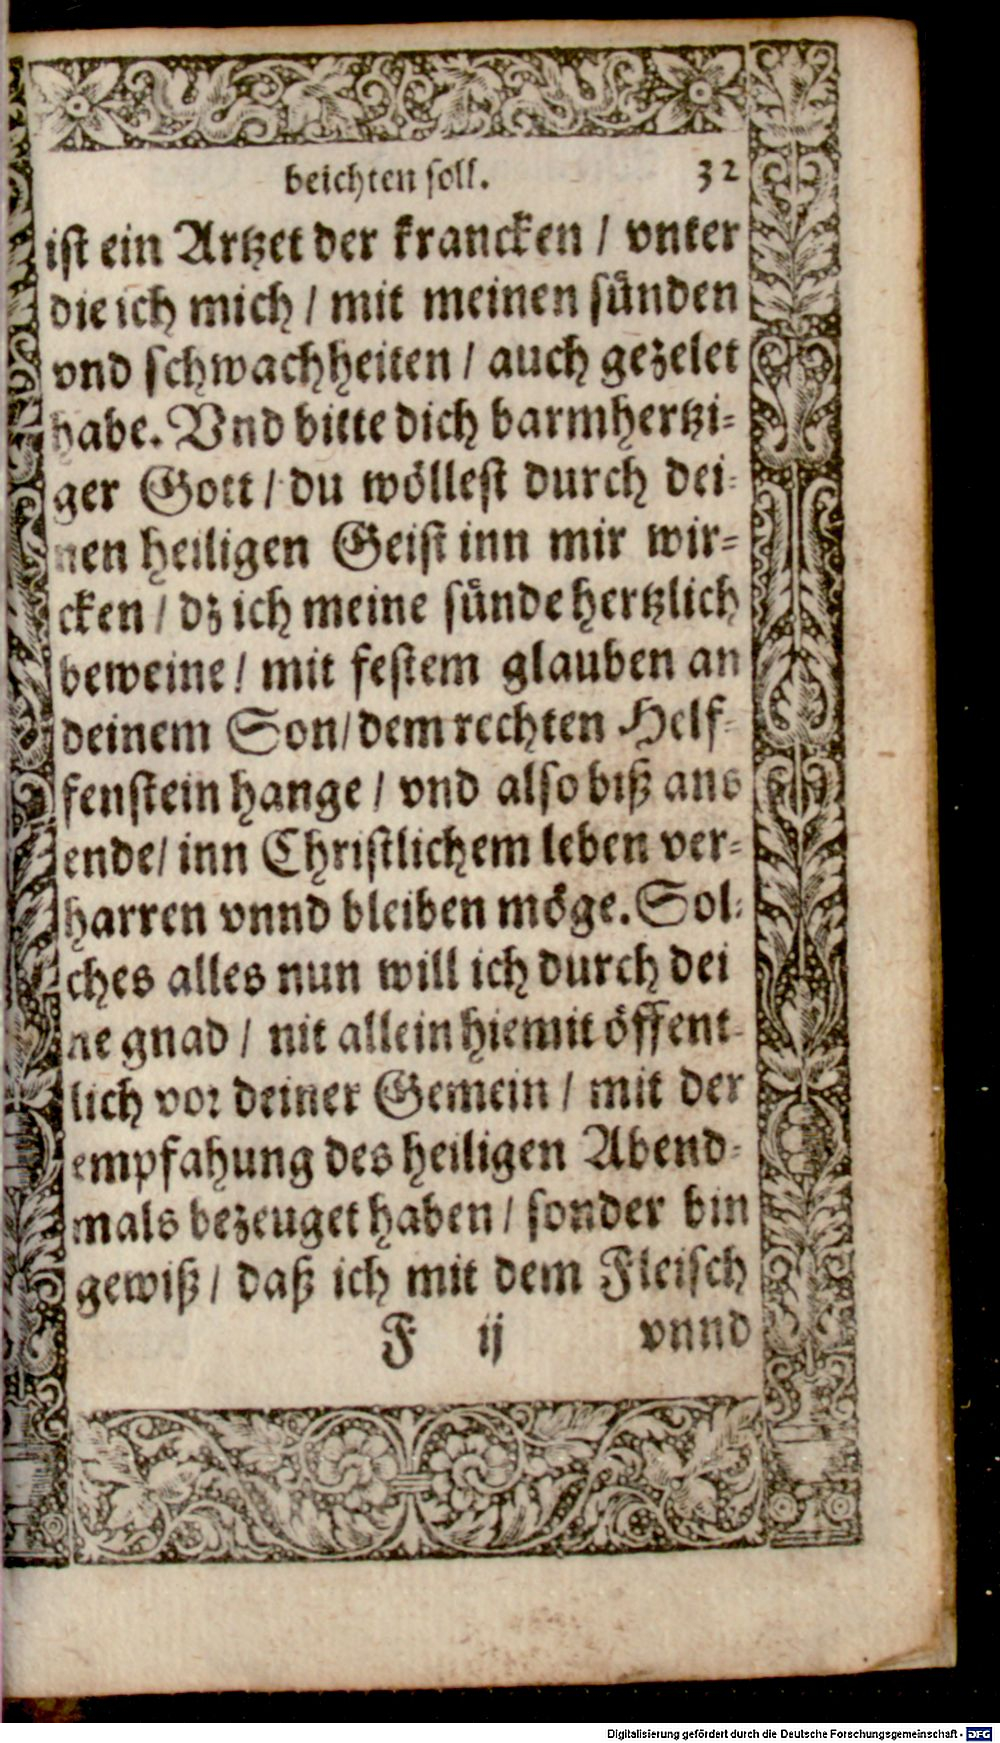 beichten soll. 32
ist ein Artzet der krancken / vnter
die ich mich / mit meinen sünden
vnd schwachheiten / auch gezelet
habe. Vnd bitte dich barmhertzi-
ger Gott / du wöllest durch dei-
nen heiligen Geist inn mir wir-
cken / dz ich meine sünde hertzlich
beweine / mit festem glauben an
deinem Son / dem rechten Helf-
fenstein hange / vnd also biß ans
ende / inn Christlichem leben ver-
harren vnnd bleiben möge. Sol-
ches alles nun will ich durch dei
ne gnad / nit allein hiemit öffent-
lich vor deiner Gemein / mit der
empfahung des heiligen Abend-
mals bezeuget haben / sonder bin
gewiß / daß ich mit dem Fleisch
F ij vnnd
Digitalisierung gefördert durch die Deutsche Forschungsgemeinschaft - DFG